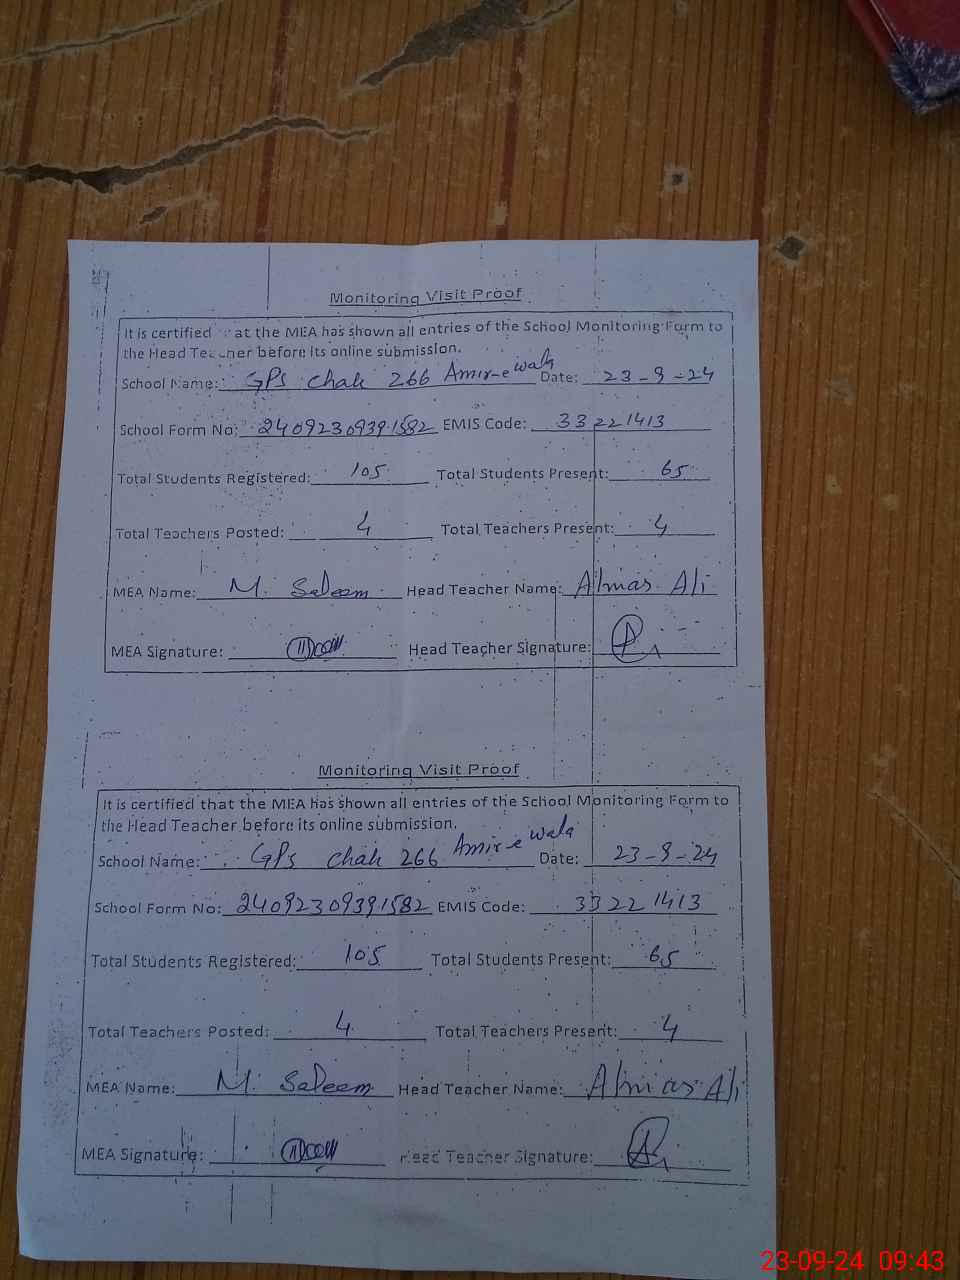 Monitoring Visit Proof
It is certified that the MEA has shown all entries of the School Monitoring Form to
the Head Teacher before its online submission.
School Name: GPS Chak 266 Amir-e wala Date: 23-9-24
School Form No: 24092309391582 EMIS Code: 33221413
Total Students Registered: 105 Total Students Present: 65
Total Teachers Posted: 4 Total Teachers Present: 4
MEA Name: M. Saleem Head Teacher Name: Almas Ali
MEA Signature: Head Teacher Signature:
Monitoring Visit Proof
It is certified that the MEA has shown all entries of the School Monitoring Form to
the Head Teacher before its online submission.
School Name: GPS Chak 266 Amir-e wala Date: 23-9-24
School Form No: 24092309391582 EMIS Code: 33221413
Total Students Registered: 105 Total Students Present: 65
Total Teachers Posted: 4 Total Teachers Present: 4
MEA Name: M. Saleem Head Teacher Name: Almas Ali
MEA Signature: Head Teacher Signature:
23-09-24 09:43